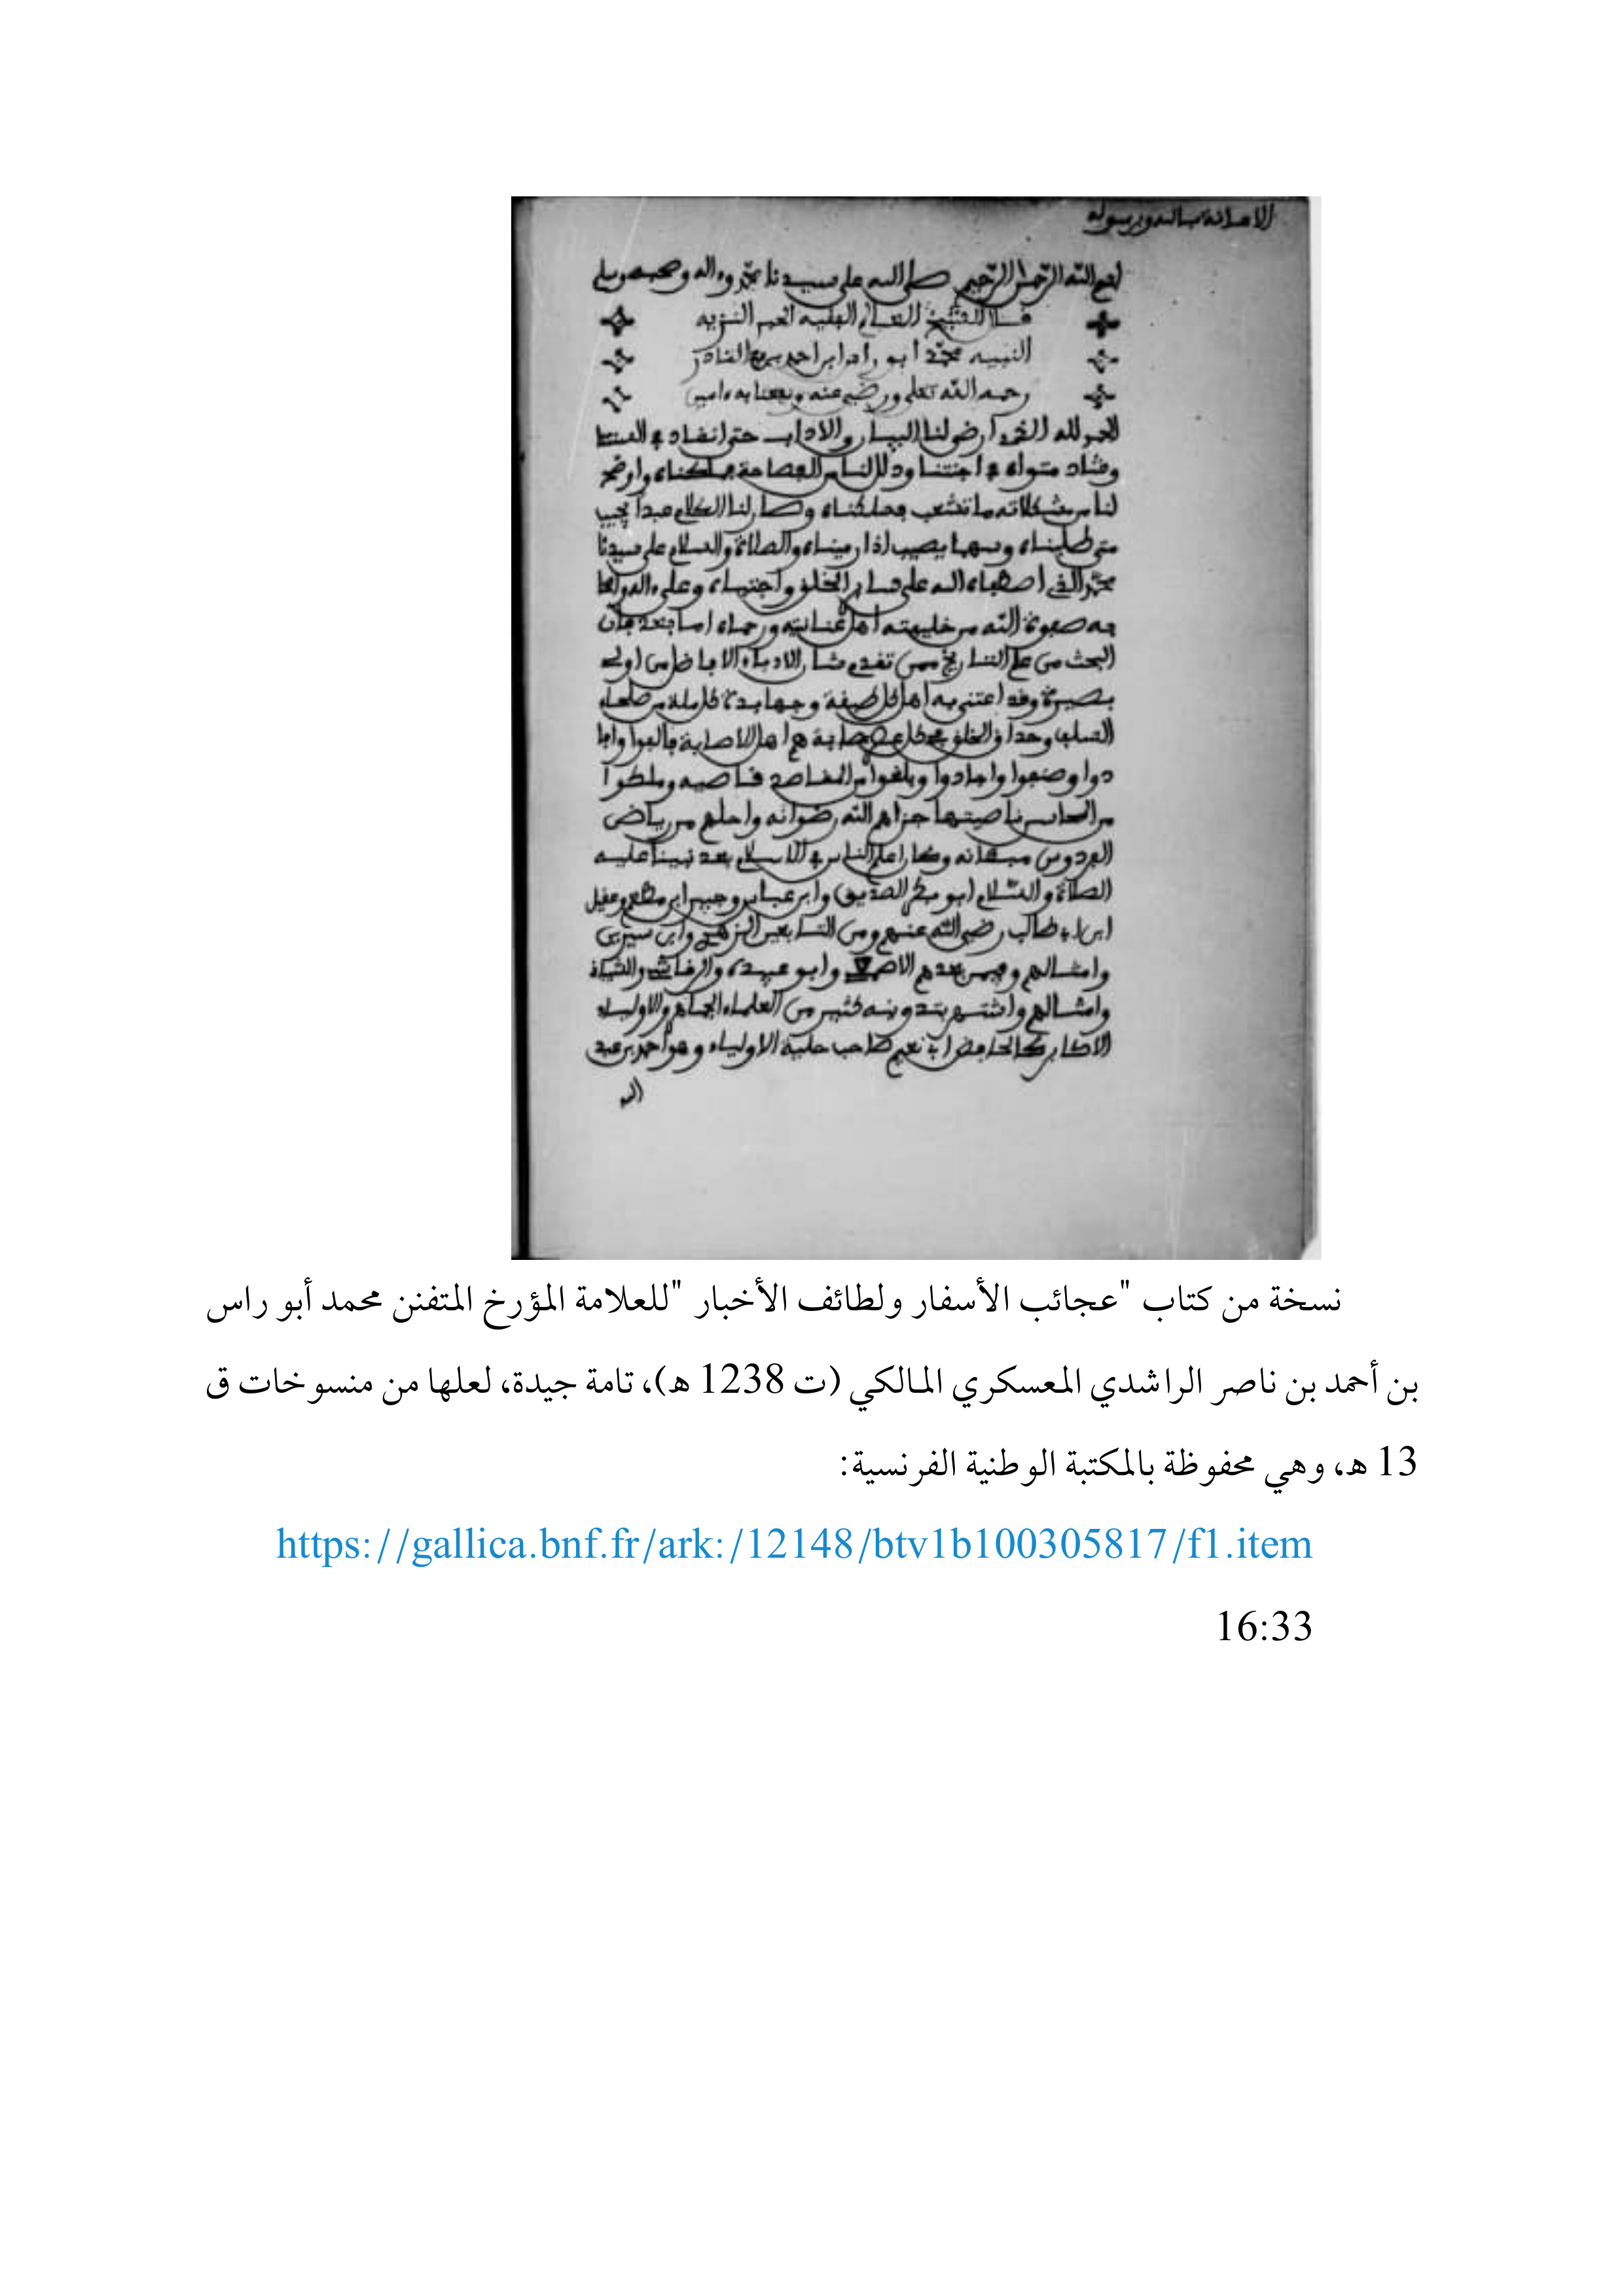 الاعانة بالله وبرسوله
بسم الله الرحمن الرحيم صلى الله على سيدنا محمد وءاله وصحبه وسلم
فال الشيخ العالم الفقيه النزيه
النبيه محمد أبو راس ابن احمد بن عبد القادر
رحمه الله تعلى ورضي عنه ونفعنا به ءامين
الحمد لله الذي لنا البيان والاداب حتى انقاد
وشاد ودلل لنا من الفصاحة وارضح
لنا من مشكلاته ما تشعب وصار لنا الكلام عبدا يجيب
متى طلبناه وسهما يصيب اذا رميناه والصلاة والسلام على سيدنا
محمد الذي اصطفاه الله على سائر الخلق واجتباه وعلى ءاله
صفوة الله من خليفته اهل ورحماه اما بعد فان
البحث من علم التاريخ ممن تقدم شان الادباء الافاضل من اولي
بصيرة وقد اعتنى به اهل كل وجهابدة كل ملة من صلحاء
السلف وحداق الخلف عصابة هم اهل الاصابة فالفوا وافا
دوا وصنفوا واجادوا وبلغوا من المقاصد قاصيه وملكوا
من المحاسن ناصيتها جزاهم الله رضوانه واحلهم من رياض
الفردوس وكان اعلم الناس به في الاسلام بعد نبينا عليه
الصلاة والسلام ابو بكر الصديق وابن عباس وجبير ابن مطعم وعفيل
ابن ابي طالب رضي الله عنهم ومن التابعين الزهري وابن سيرين
وامثالهم وممن بعدهم وابو عبيدة
وامثالهم واشتهر بتدوينه كثير من العلماء والاولياء
الاكابر كالحافظ ابي نعيم صاحب حلية الاولياء وهو احمد بن عبد
الله
نسخة من كتاب "عجائب الأسفار ولطائف الأخبار "للعلامة المؤرخ المتفنن محمد أبو راس
بن أحمد بن ناصر الراشدي المعسكري المالكي (ت 1238 ه)، تامة جيدة، لعلها من منسوخات ق
13 ه، وهي محفوظة بالمكتبة الوطنية الفرنسية:
https://gallica.bnf.fr/ark:/12148/btv1b100305817/f1.item
16:33